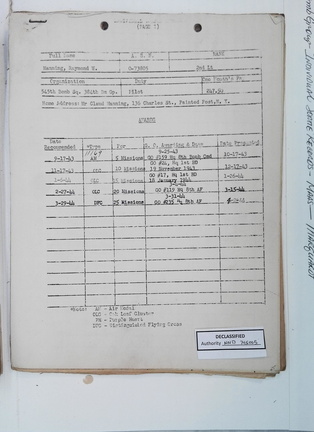 (PAGE 1)
Full Name A. S. N. RANK
Manning, Raymond W. 2nd Lt
Organization Duty One Month's Pay
545th Bomb Sq. 384th Bm Gp. Pilot
Home Address: Mr Claud Manning, 136 Charles St., Painted Post, N. Y.
AWARDS
Date Recommended *Type For G. O. Awarding & Date Date Presented
9-25-43
9-17-43 AM 5 Missions GO #159 Hq 8th Bomb Cmd 10-17-43
GO #24, Hq 1st BD
11-17-43 OLC 10 Missions 19 November 1943 12-17-43
GO #17, Hq 1st BD
OLC Missions 18 January 1944 1-26-44
3-4-44
2-27-44 OLC 20 Missions GO #119 Hq 8th AF 3-15-44
3-31-44
3-29-44 DFC 25 Missions GO #235 Hq 8th AF
*Note: AM - Air Medal
OLC - Oak Leaf Cluster
PH - Purple Heart
DFC - Distinguished Flying Cross
DECLASSIFIED
Authority NND